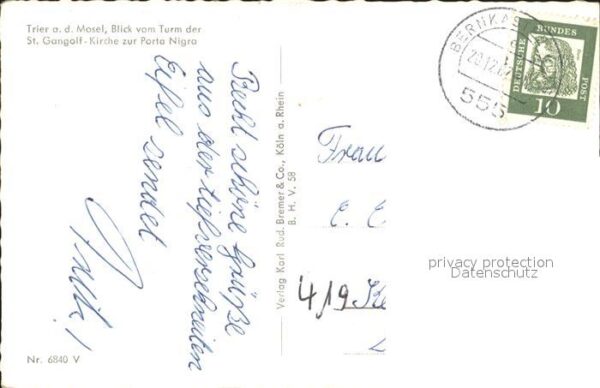 Trier a. d. Mosel, Blick vom Turm der
St. Gangolf-Kirche zur Porta Nigra
Recht schöne Grüße
aus der tiefverschneiten
Eifel sendet
Nr. 6840 V
Verlag Karl Rud. Bremer & Co., Köln a. Rhein
B. H. V. 58
BERNKAS
20.12.62
555
DEUTSCHE BUNDES
POST
10
Frau
C. C
4/9
privacy protection
Datenschutz